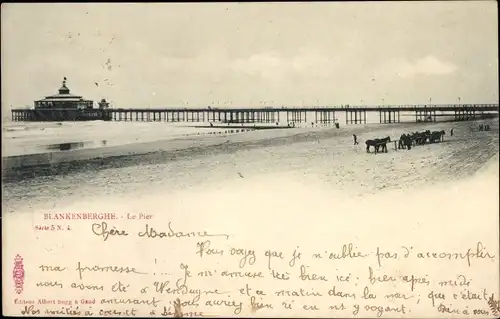 BLANKENBERGHE. - Le Pier
Série 5 N. 4.
Chère Madame,
Vous voyez que je n'oublie pas d'accomplir
ma promesse !... Je m'amuse très bien ici; hier après midi
nous avons été à et ce matin dans la mer, que c'était
amusant, j'ai bien ri en
Editeur Albert Sugg à Gand
Nos amitiés à et à Bien à vous